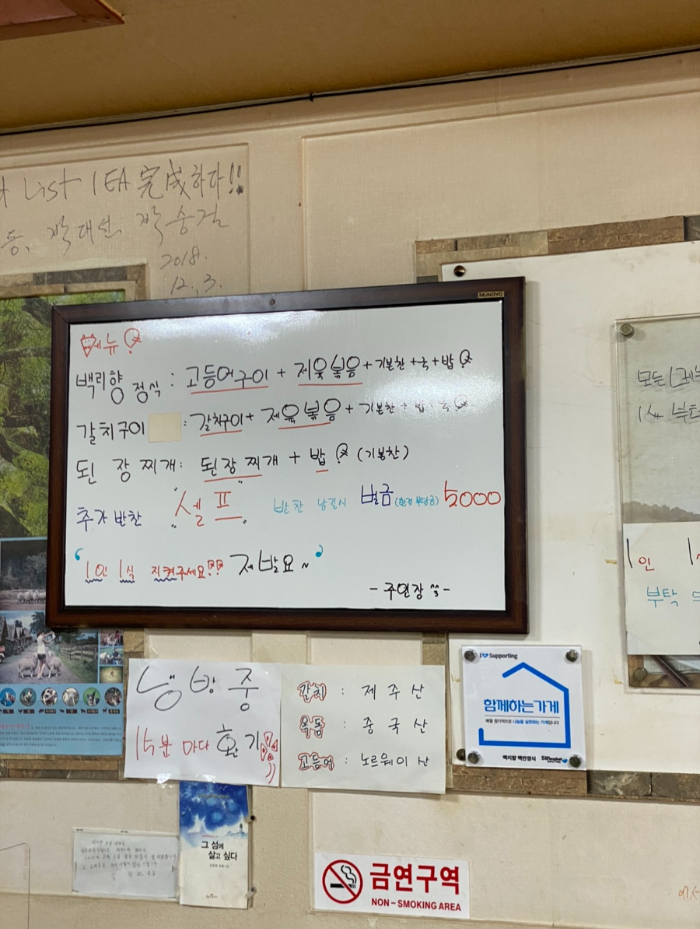 List 1EA 完成하다!!
2018.
12. 3.
MUNGYO
메뉴
백리향 정식 : 고등어구이 + 제육볶음 + 기본찬 + 국 + 밥
갈치구이 : 갈치구이 + 제육볶음 + 기본찬 + 밥 + 국
된장찌개 : 된장찌개 + 밥 (기본찬)
추가반찬 셀프 반찬 남길시 벌금 (환경부담금) 5000
"1인 1식 지켜주세요!! 제발요~"
- 주인장 씀 -
모든
1人
1인
부탁
냉방중
15분 마다 환기
갈치 : 제주산
옥돔 : 중국산
고등어 : 노르웨이산
Supporting
함께하는가게
그 섬에
살고 싶다
금연구역
NON - SMOKING AREA